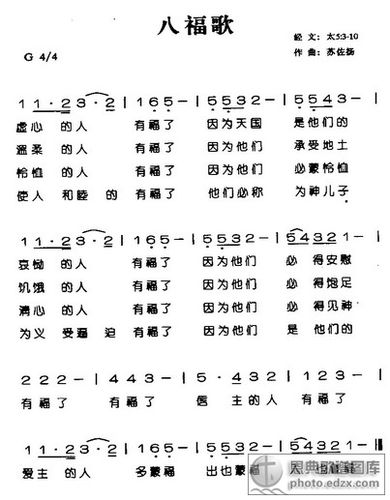 八福歌
G 4/4
经 文：太5:3-10
作 曲：苏佐扬
1 1·2 3·2 | 1 6 5 - | 5 5 3 2 - | 5 5 4 3 2 1 - |
虚心 的人 有福了 因为天国 是他们的
温柔 的人 有福了 因为他们 承受地土
怜恤 的人 有福了 因为他们 必蒙怜恤
使人 和睦 的 有福了 他们必称 为神儿子
1 1·2 3·2 | 1 6 5 - | 5 5 3 2 - | 5 4 3 2 1 - |
哀恸 的人 有福了 因为他们 必 得安慰
饥饿 的人 有福了 因为他们 必 得饱足
清心 的人 有福了 因为他们 必 得见神
为义 受逼 迫 有福了 因为他们 是 他们的
2 2 2 - | 4 4 3 - | 5· 4 3 3 2 | 1 2 3 - |
有福了 有福了 信 主的人 有福了
1 1·2 3·2 | 1 6 5 - | 5 5 3 2 - | 5 4 3 2 1 - ‖
爱主 的人 多蒙福 出也蒙福
恩典图库
photo.edzx.com